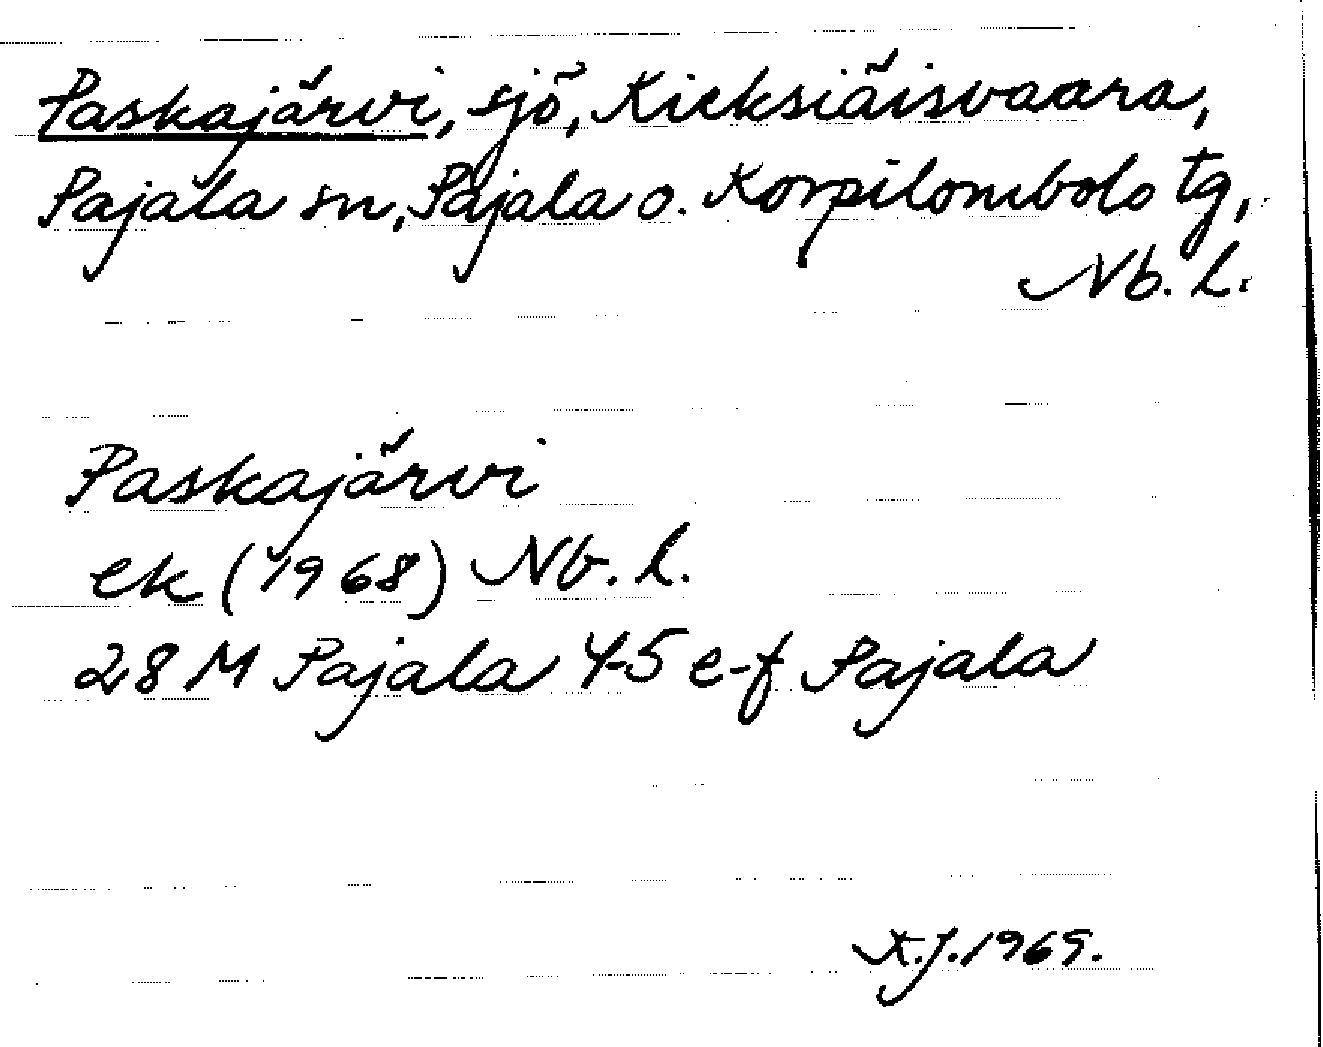 Paskajärvi, sjö, Kieksiäisvaara,
Pajala sn, Pajala o. Korpilombolo tg,
Nb. l.
Paskajärvi
ek (1968) Nb. l.
28 M Pajala 4-5 e-f Pajala
K.J. 1969.